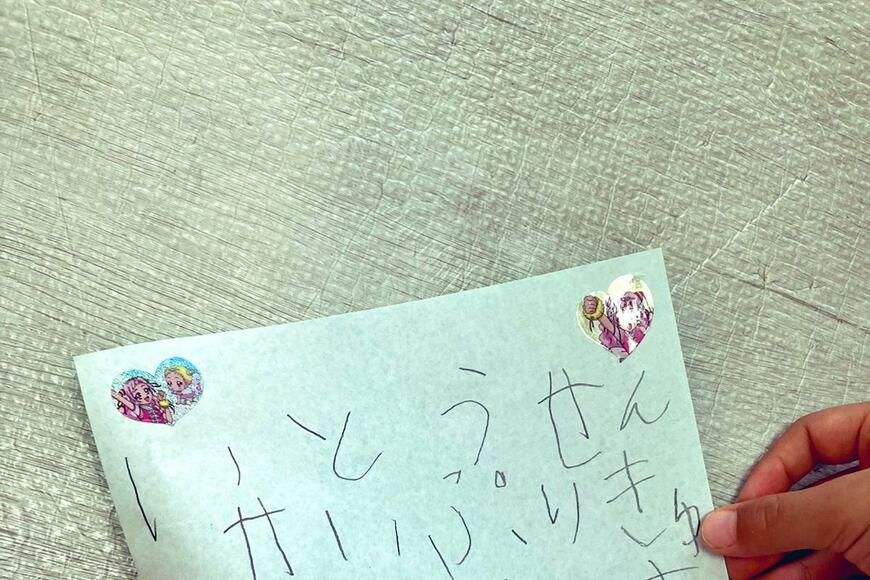 いとうせん
せいぷりきゅ